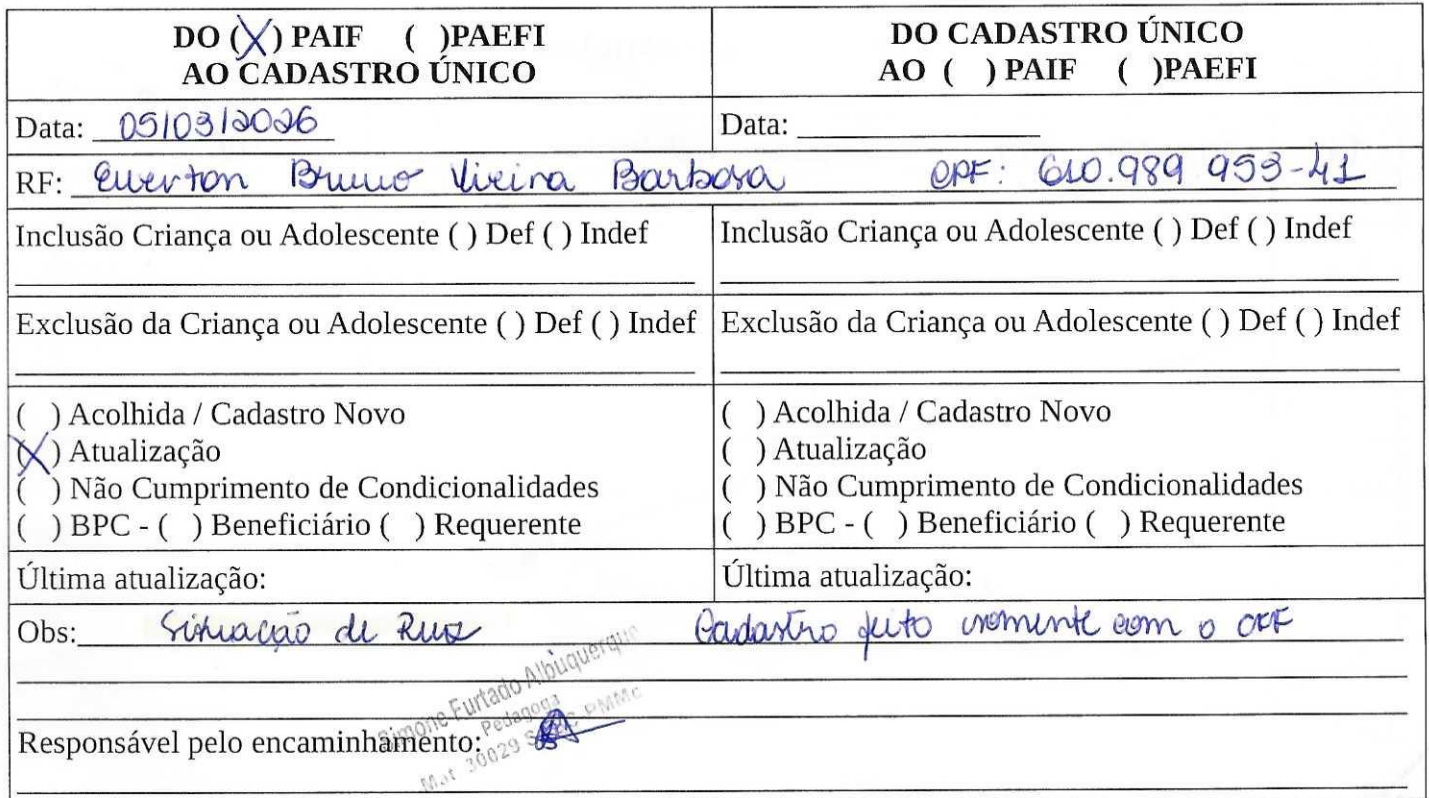 DO (X) PAIF ( )PAEFI
AO CADASTRO ÚNICO
DO CADASTRO ÚNICO
AO ( ) PAIF ( )PAEFI
Data: 05/03/2026
Data:
RF: Ewerton Bruno Vieira Barbosa CPF: 610.989 953-41
Inclusão Criança ou Adolescente ( ) Def ( ) Indef
Inclusão Criança ou Adolescente ( ) Def ( ) Indef
Exclusão da Criança ou Adolescente ( ) Def ( ) Indef
Exclusão da Criança ou Adolescente ( ) Def ( ) Indef
( ) Acolhida / Cadastro Novo
(X) Atualização
( ) Não Cumprimento de Condicionalidades
( ) BPC - ( ) Beneficiário ( ) Requerente
( ) Acolhida / Cadastro Novo
( ) Atualização
( ) Não Cumprimento de Condicionalidades
( ) BPC - ( ) Beneficiário ( ) Requerente
Última atualização:
Última atualização:
Obs: Situação de Rua Cadastro feito somente com o CPF
Simone Furtado Albuquerque
Pedagoga
Mat 30029 PMMC
Responsável pelo encaminhamento: